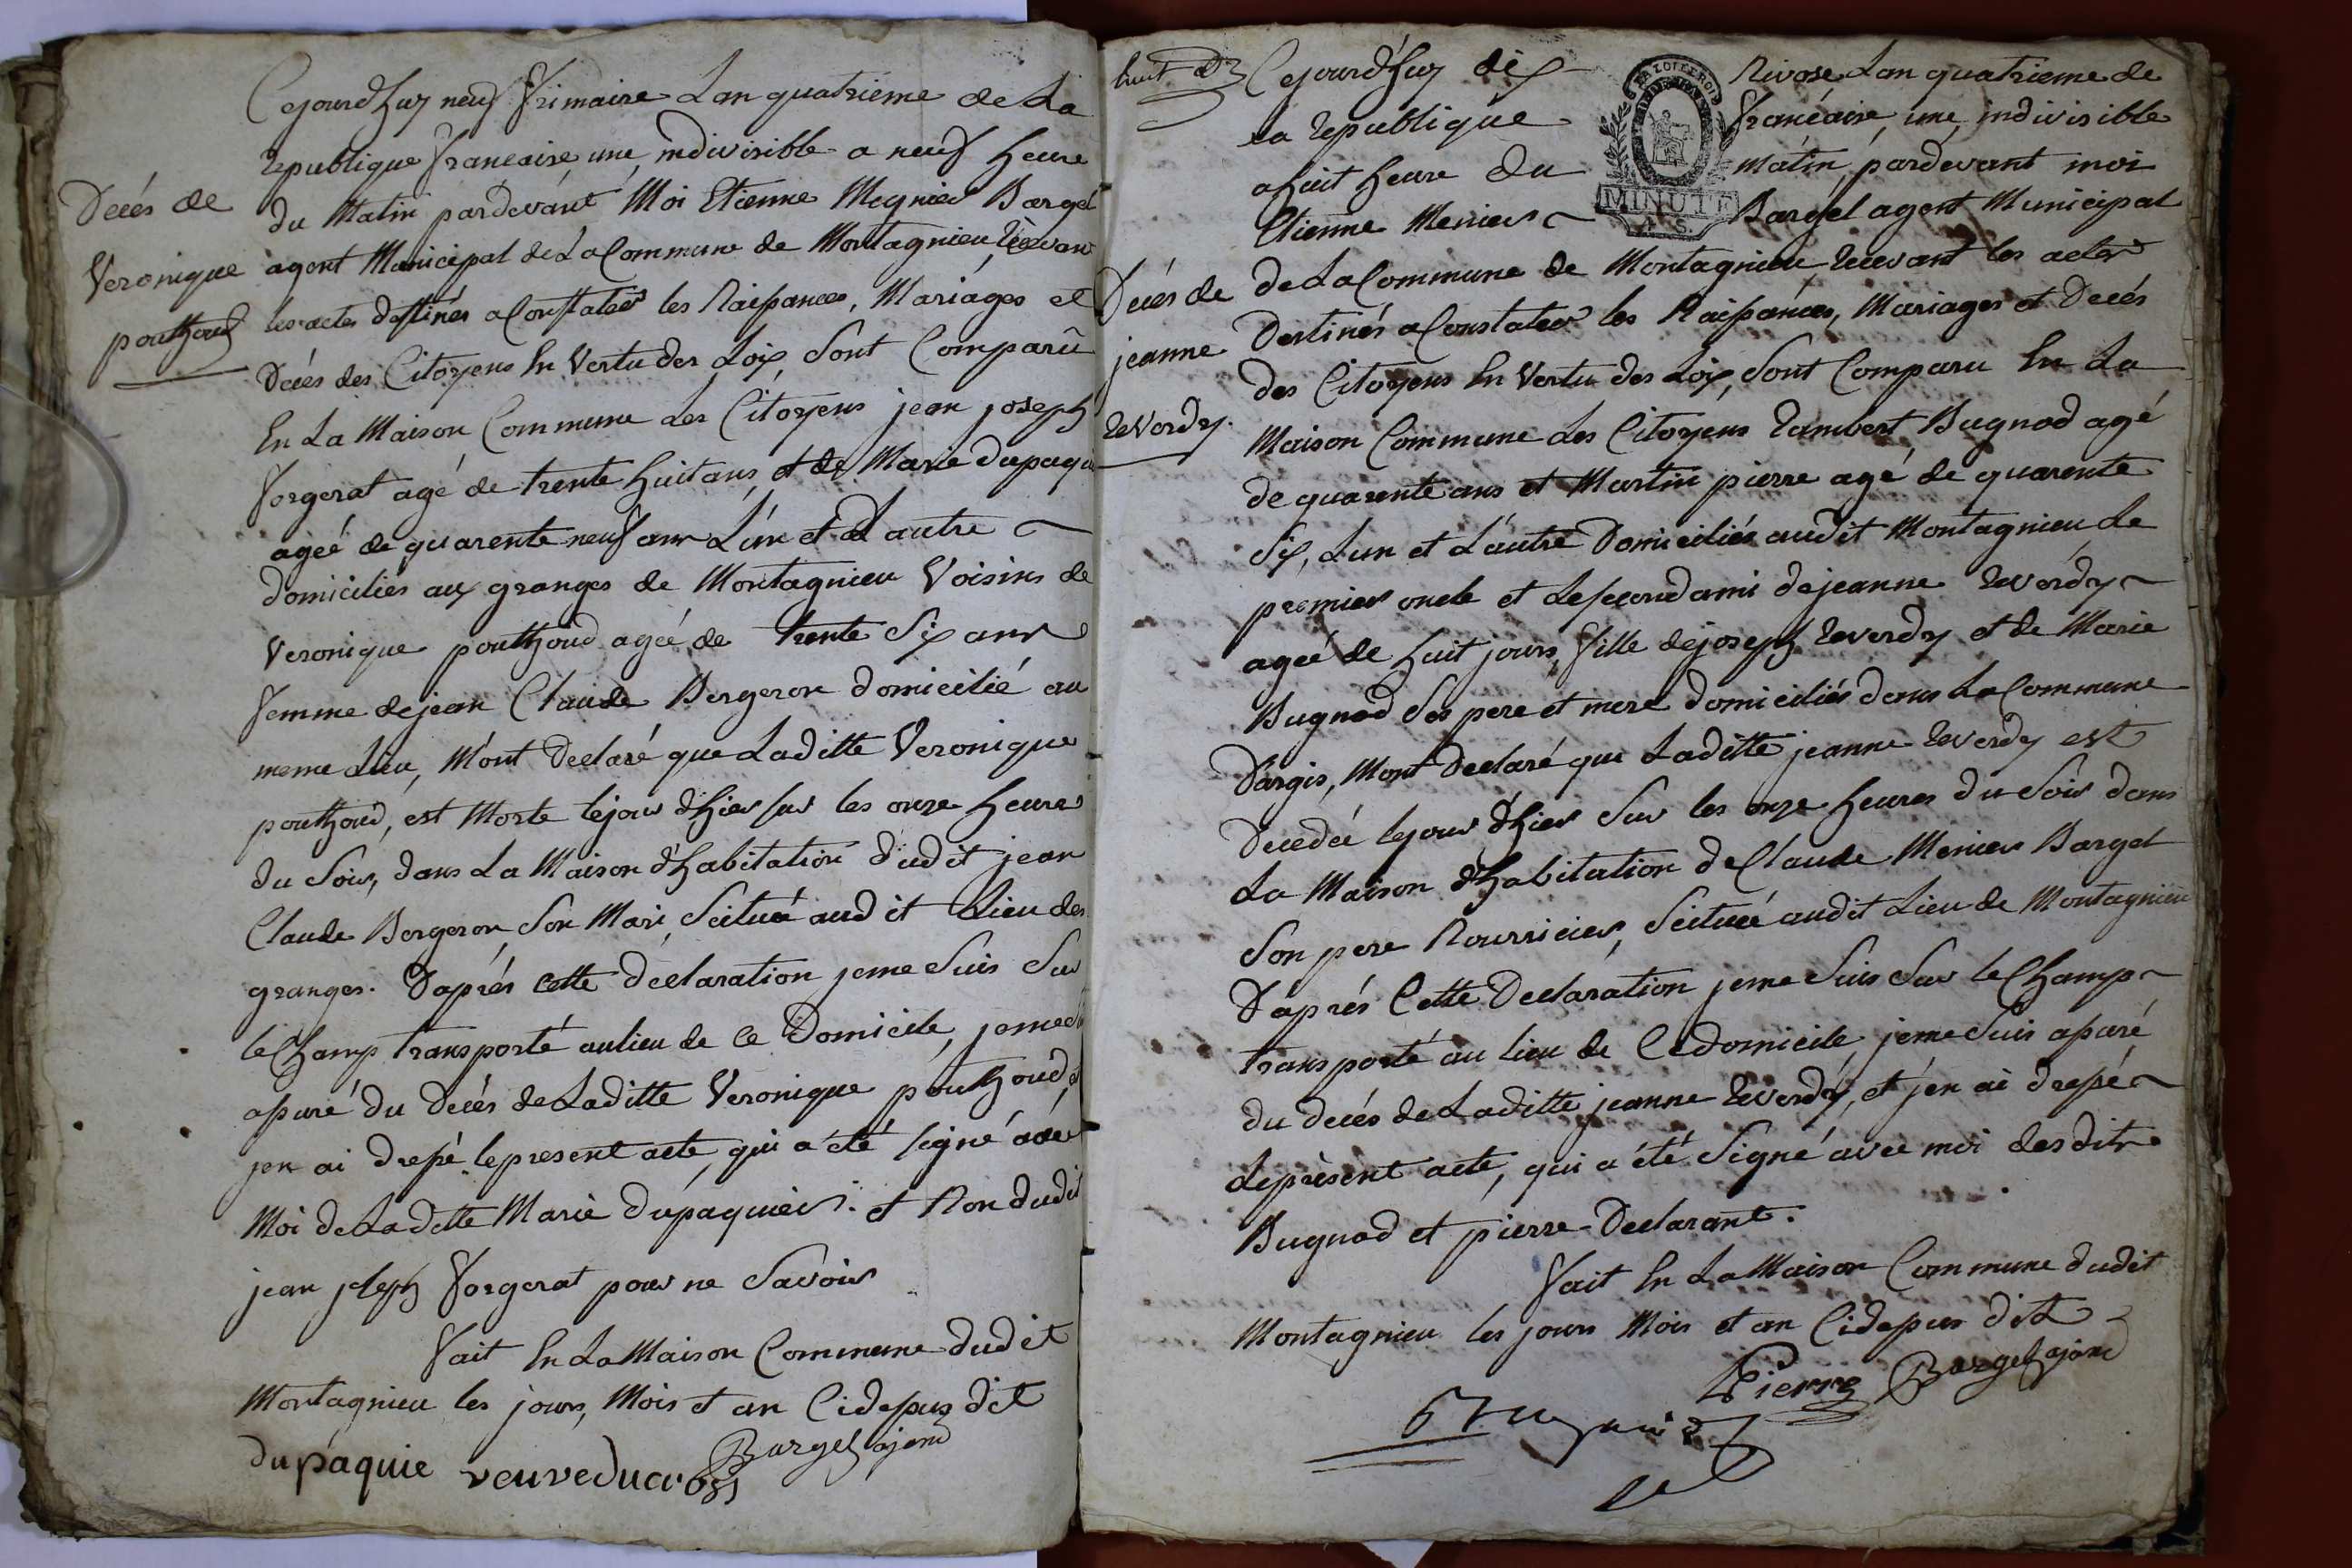 Cejourdhuy neuf frimaire Lan quatrieme de La
republique francaise une indivisible a neuf heure
du Matin pardevant Moi Etienne Megnier Bargel
Décés de
Veronique
pouthoud
agent Municipal de La Commune de Montagnieu, recevant
les actes destinés a Constater les Naissances, Mariages et
Décés des Citoyens En Vertu des Loix, Sont Comparû
En La Maison Commune les Citoyens jean joseph
forgerat agé de trente huit ans, et de Marie dupaquie
ageé de quarente neuf ans L'un et L autre
domiciliés aux granges de Montagnieu Voisins de
Veronique pouthoud ageé de trente Six ans
femme de jean Claude Bergeron domicilié au
meme Lieu, M'ont Declaré que Laditte Veronique
pouthoud, est Morte lejour d'hier sur les onze heures
du Soir, dans La Maison d'habitation dudit jean
Claude Bergeron Son Mari, Scituée audit Lieu des
granges. D'aprés cette Declaration jeme Suis Sur
le Champ transporté aulieu de Ce Domicile, jeme
assuré du Decés de Laditte Veronique pouthoud, et
jen ai dressé lepresent acte, qui a été signé avec
Moi de Laditte Marie dupaquier. et Non dudit
jean joseph forgerat pour ne Savoir
fait En La Maison Commune dudit
Montagnieu les jours, Mois et an Cidessus dit
dupaquie veuve ducros
Bargel ajend
huit
Cejourd'huy dix Nivose Lan quatrieme de
La republique francaise, une, indivisible
ahuit heure du Matin, pardevant moi
Etienne Menier Bargel agent Municipal
LA LOI LE ROI
MINUTE
Décés de
jeanne
reverdy.
de La Commune de Montagnieu recevant les actes
Destinés a Constater les Naissances, Mariages et Decés
des Citoyens En Vertu des Loix, Sont Comparu En La
Maison Commune Les Citoyens rambert Bugnod agé
de quarente ans et Martin pierre agé de quarente
Six, Lun et L'autre Domiciliés audit Montagnieu, Le
premier oncle et Lesecond ami dejeanne reverdy
ageé de huit jours, fille dejoseph reverdy et de Marie
Bugnod Ses pere et mere domiciliés dans La Commune
D'argis, Mont Declaré que Laditte jeanne reverdy est
Decedeé lejour d'hier Sur les onze heures du Soir dans
La Maison d'habitation de Claude Menier Bargel
Son pere Nourricier, Scituée audit Lieu de Montagnieu
D'aprés Cette Declaration jeme Suis Sur le Champ
transporté au lieu de Cedomicile, jeme Suis assuré
du decés de Laditte jeanne reverdy, et j'en ai dressé
Leprésent acte, qui a été Signé avec moi desdits
Bugnod et pierre Declarant.
fait En La Maison Commune dudit
Montagnieu les jours Mois et an Cidessus dit
Pierre Bargel ajend